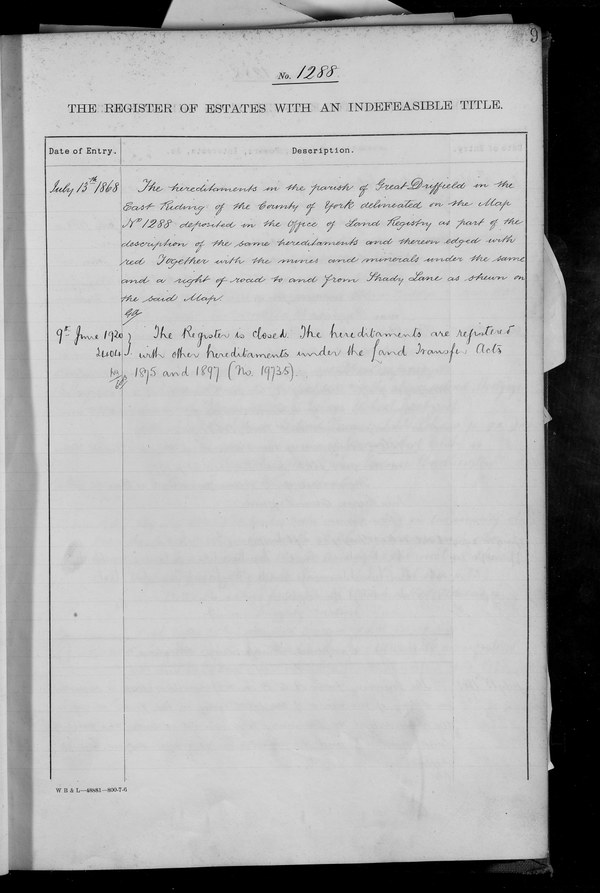 9
No. 1288
THE REGISTER OF ESTATES WITH AN INDEFEASIBLE TITLE.
Date of Entry. Description.
July 13th 1868 The hereditaments in the parish of Great Driffield in the
East Riding of the County of York delineated on the Map
No 1288 deposited in the Office of Land Registry as part of the
description of the same hereditaments and thereon edged with
red Together with the mines and minerals under the same
and a right of road to and from Shady Lane as shewn on
the said Map
9th June 1920 The Register is closed. The hereditaments are registered
with other hereditaments under the Land Transfer Acts
1875 and 1897 (No. 19735).
W B & L—46881—800-7-6